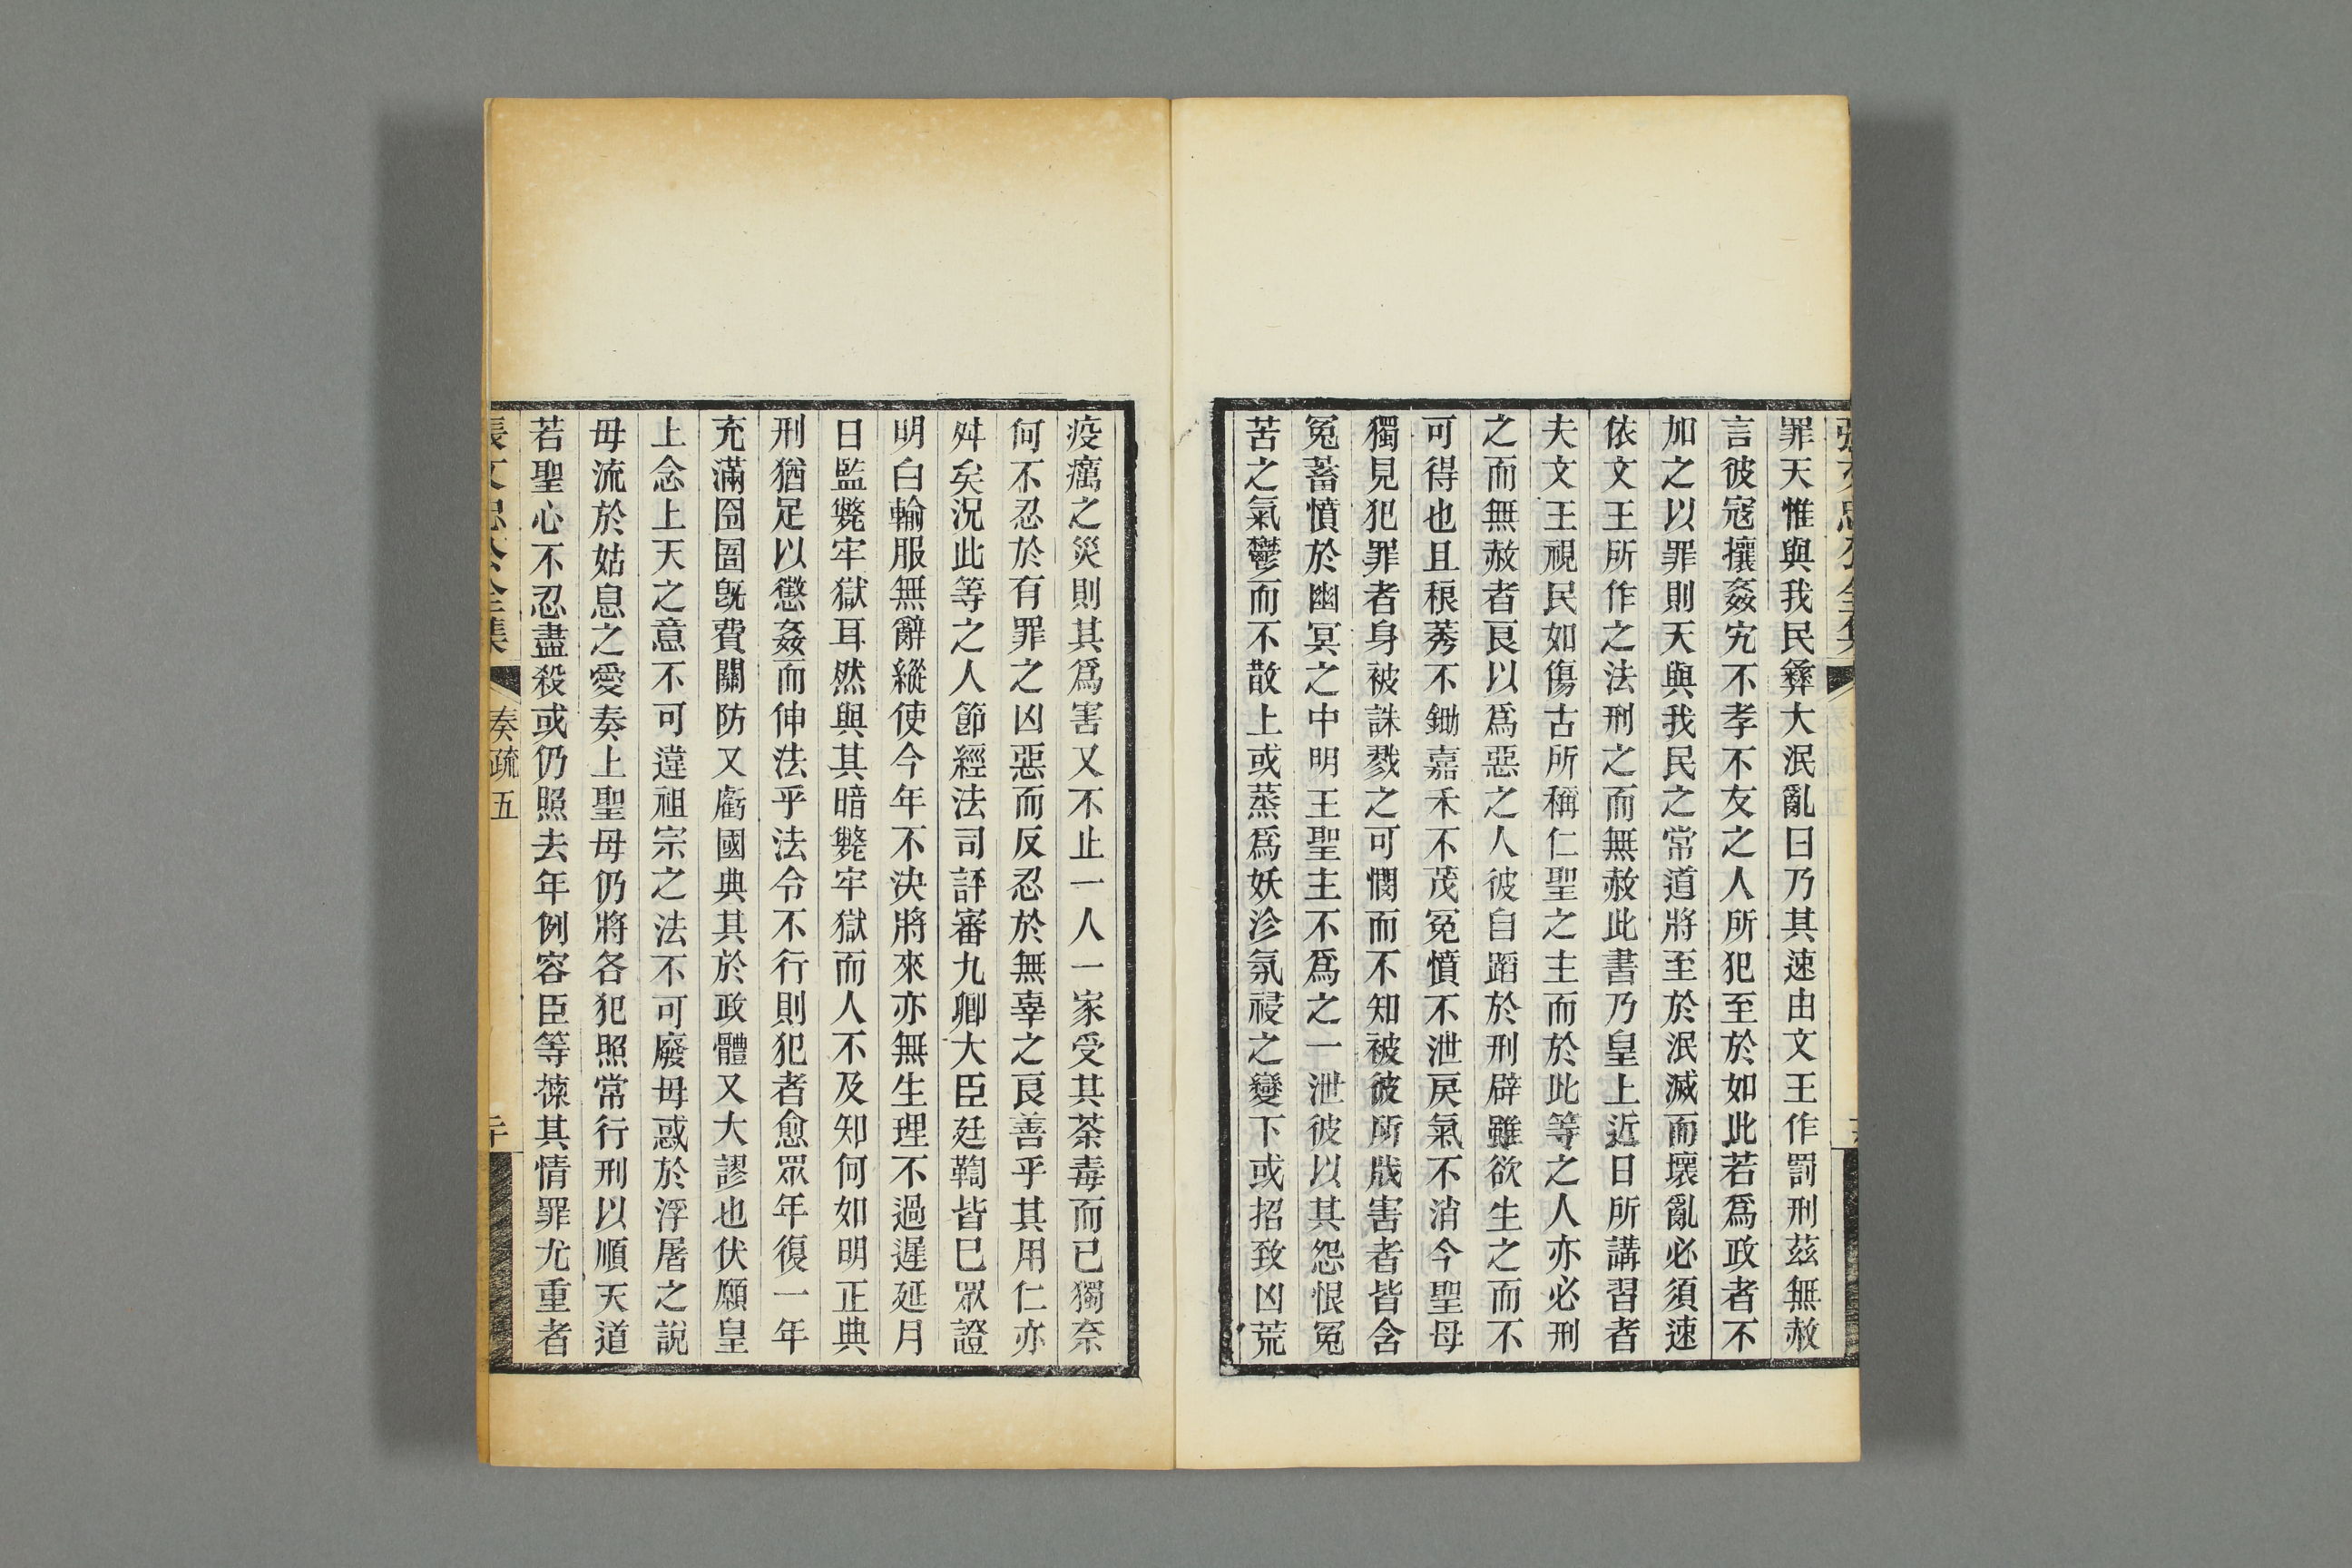 罪天惟與我民彝大泯亂曰乃其速由文王作罰刑茲無赦
言彼寇攘姦宄不孝不友之人所犯至於如此若爲政者不
加之以罪則天與我民之常道將至於泯滅而壞亂必須速
依文王所作之法刑之而無赦此書乃皇上近日所講習者
夫文王視民如傷古所稱仁聖之主而於此等之人亦必刑
之而無赦者良以爲惡之人彼自蹈於刑辟雖欲生之而不
可得也且稂莠不鋤嘉禾不茂冤憤不泄戾氣不消今聖母
獨見犯罪者身被誅戮之可憫而不知被彼所戕害者皆含
冤蓄憤於幽冥之中明王聖主不爲之一泄彼以其怨恨冤
苦之氣鬱而不散上或蒸爲妖沴氛祲之變下或招致凶荒
疫癘之災則其爲害又不止一人一家受其荼毒而已獨奈
何不忍於有罪之凶惡而反忍於無辜之良善乎其用仁亦
舛矣況此等之人節經法司評審九卿大臣廷鞫皆已眾證
明白輸服無辭縱使今年不決將來亦無生理不過遲延月
日監斃牢獄耳然與其暗斃牢獄而人不及知何如明正典
刑猶足以懲姦而伸法乎法令不行則犯者愈眾年復一年
充滿囹圄旣費關防又虧國典其於政體又大謬也伏願皇
上念上天之意不可違祖宗之法不可廢毋惑於浮屠之說
毋流於姑息之愛奏上聖母仍將各犯照常行刑以順天道
若聖心不忍盡殺或仍照去年例容臣等揀其情罪尤重者
張文忠公全集 奏疏五 二十